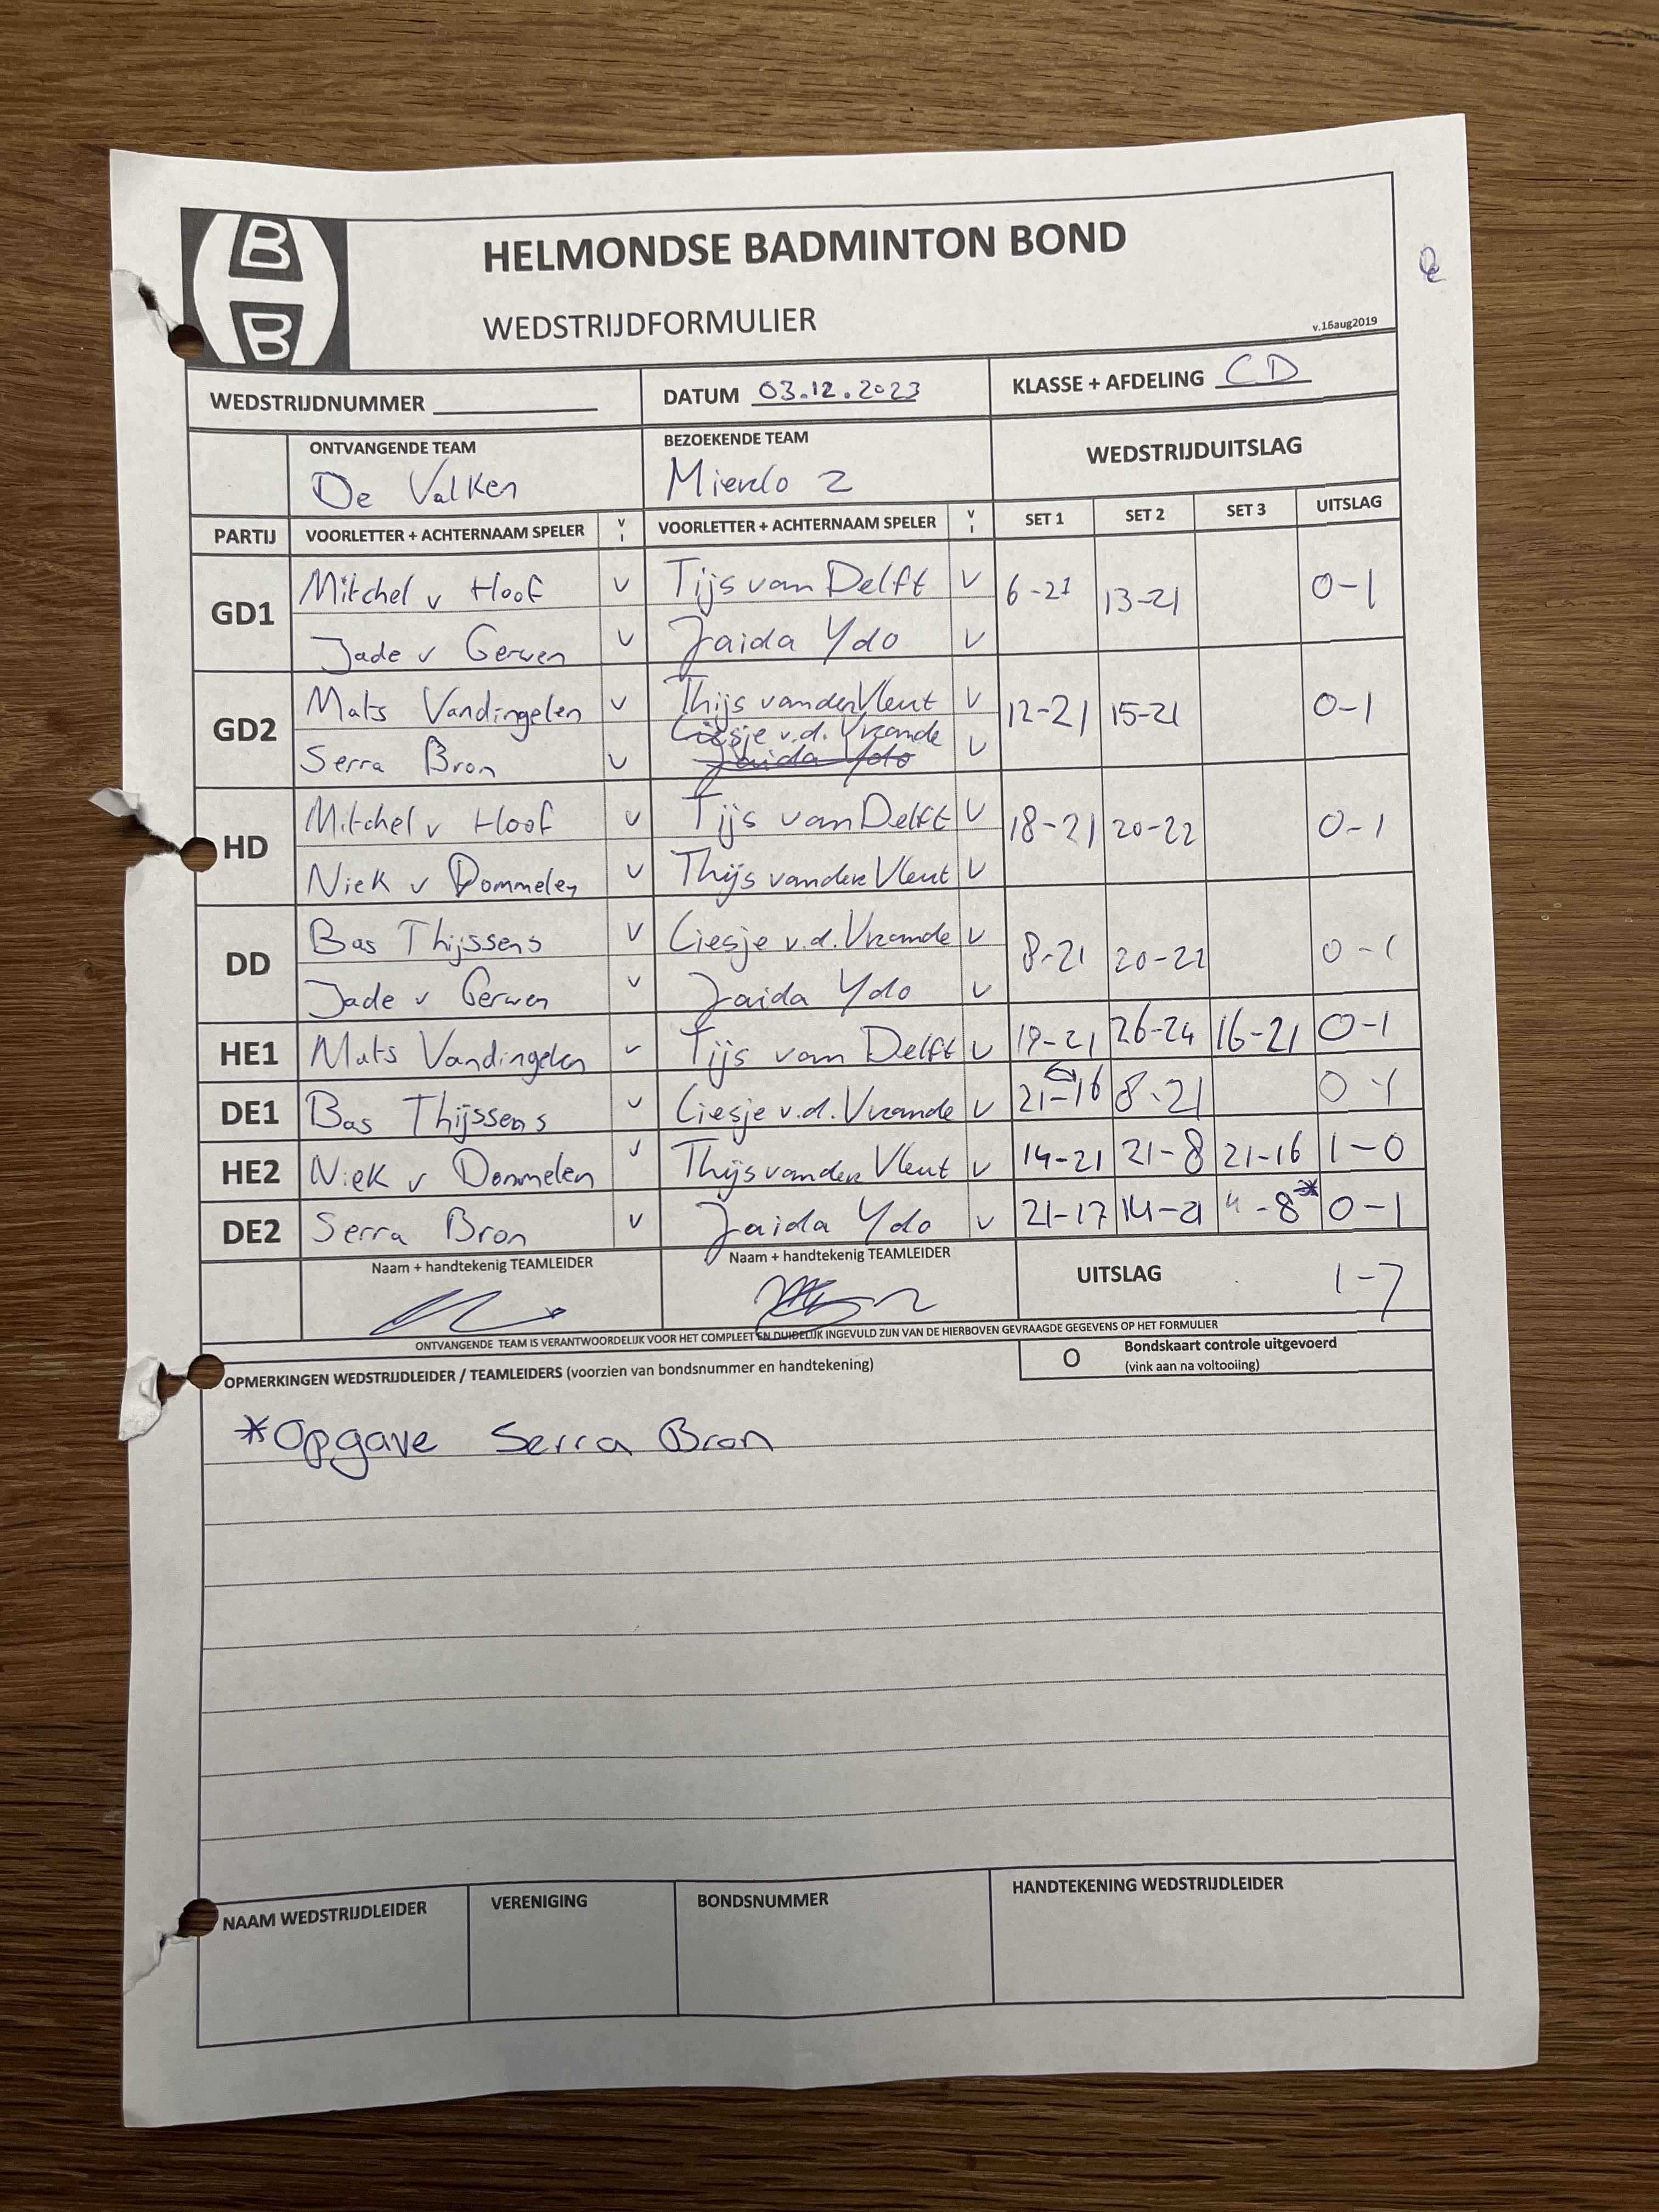 B
B
HELMONDSE BADMINTON BOND
WEDSTRIJDFORMULIER
v.16aug2019
WEDSTRIJDNUMMER
DATUM 03.12.2023
KLASSE + AFDELING CD
ONTVANGENDE TEAM
De Valken
BEZOEKENDE TEAM
Mierlo 2
WEDSTRIJDUITSLAG
PARTIJ VOORLETTER + ACHTERNAAM SPELER V I VOORLETTER + ACHTERNAAM SPELER V I SET 1 SET 2 SET 3 UITSLAG
GD1 Mitchel v Hoof V Tijs van Delft V 6-21 13-21 0-1
Jade v Gerwen V Jaida Ydo V
GD2 Mats Vandingelen V Thijs van der Vleut V 12-21 15-21 0-1
Liesje v.d. Vrande
Serra Bron V Jaida Ydo V
HD Mitchel v Hoof V Tijs van Delft V 18-21 20-22 0-1
Niek v Dommelen V Thijs van der Vleut V
DD Bas Thijssens V Liesje v.d. Vrande V 8-21 20-22 0-1
Jade v Gerwen V Jaida Ydo V
HE1 Mats Vandingelen V Tijs van Delft V 19-21 26-24 16-21 0-1
DE1 Bas Thijssens V Liesje v.d. Vrande V 21-16 8-21 0-1
HE2 Niek v Dommelen V Thijs van der Vleut V 14-21 21-8 21-16 1-0
DE2 Serra Bron V Jaida Ydo V 21-17 14-21 4-8* 0-1
Naam + handtekenig TEAMLEIDER
Naam + handtekenig TEAMLEIDER
UITSLAG 1-7
ONTVANGENDE TEAM IS VERANTWOORDELIJK VOOR HET COMPLEET EN DUIDELIJK INGEVULD ZIJN VAN DE HIERBOVEN GEVRAAGDE GEGEVENS OP HET FORMULIER
OPMERKINGEN WEDSTRIJDLEIDER / TEAMLEIDERS (voorzien van bondsnummer en handtekening)
O Bondskaart controle uitgevoerd
(vink aan na voltooiing)
*Opgave Serra Bron
NAAM WEDSTRIJDLEIDER
VERENIGING
BONDSNUMMER
HANDTEKENING WEDSTRIJDLEIDER